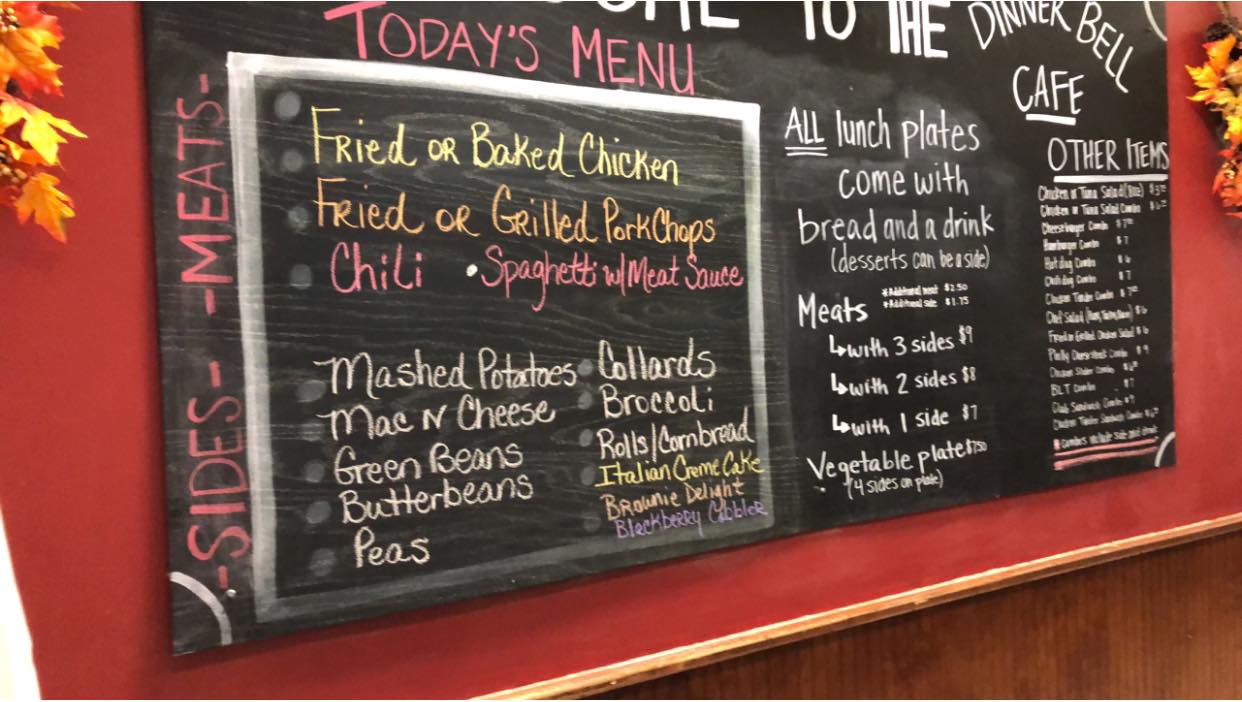 TO THE
DINNER BELL
CAFE
TODAY'S MENU
-MEATS-
Fried or Baked Chicken
Fried or Grilled Pork Chops
Chili • Spaghetti w/Meat Sauce
-SIDES-
Mashed Potatoes
Mac N Cheese
Green Beans
Butterbeans
Peas
Collards
Broccoli
Rolls/Cornbread
Italian Creme Cake
Brownie Delight
Blackberry Cobbler
ALL lunch plates
come with
bread and a drink
(desserts can be a side)
Meats
*Additional meat $2.50
*Additional side $1.75
↳with 3 sides $9
↳with 2 sides $8
↳with 1 side $7
Vegetable plate $7.50
(4 sides on plate)
OTHER ITEMS
Chicken or Tuna Salad
Chicken or Tuna Salad Combo
Cheeseburger Combo
Hamburger Combo $7
Hot dog Combo $6
Chili dog Combo $7
Chicken Tender Combo
Chef Salad
Fried or Grilled Chicken Salad
Philly Cheesesteak Combo $9
Chicken Slider Combo
BLT Combo $7
Club Sandwich Combo $9
Chicken Tender Sandwich Combo
* Combos include side and drink